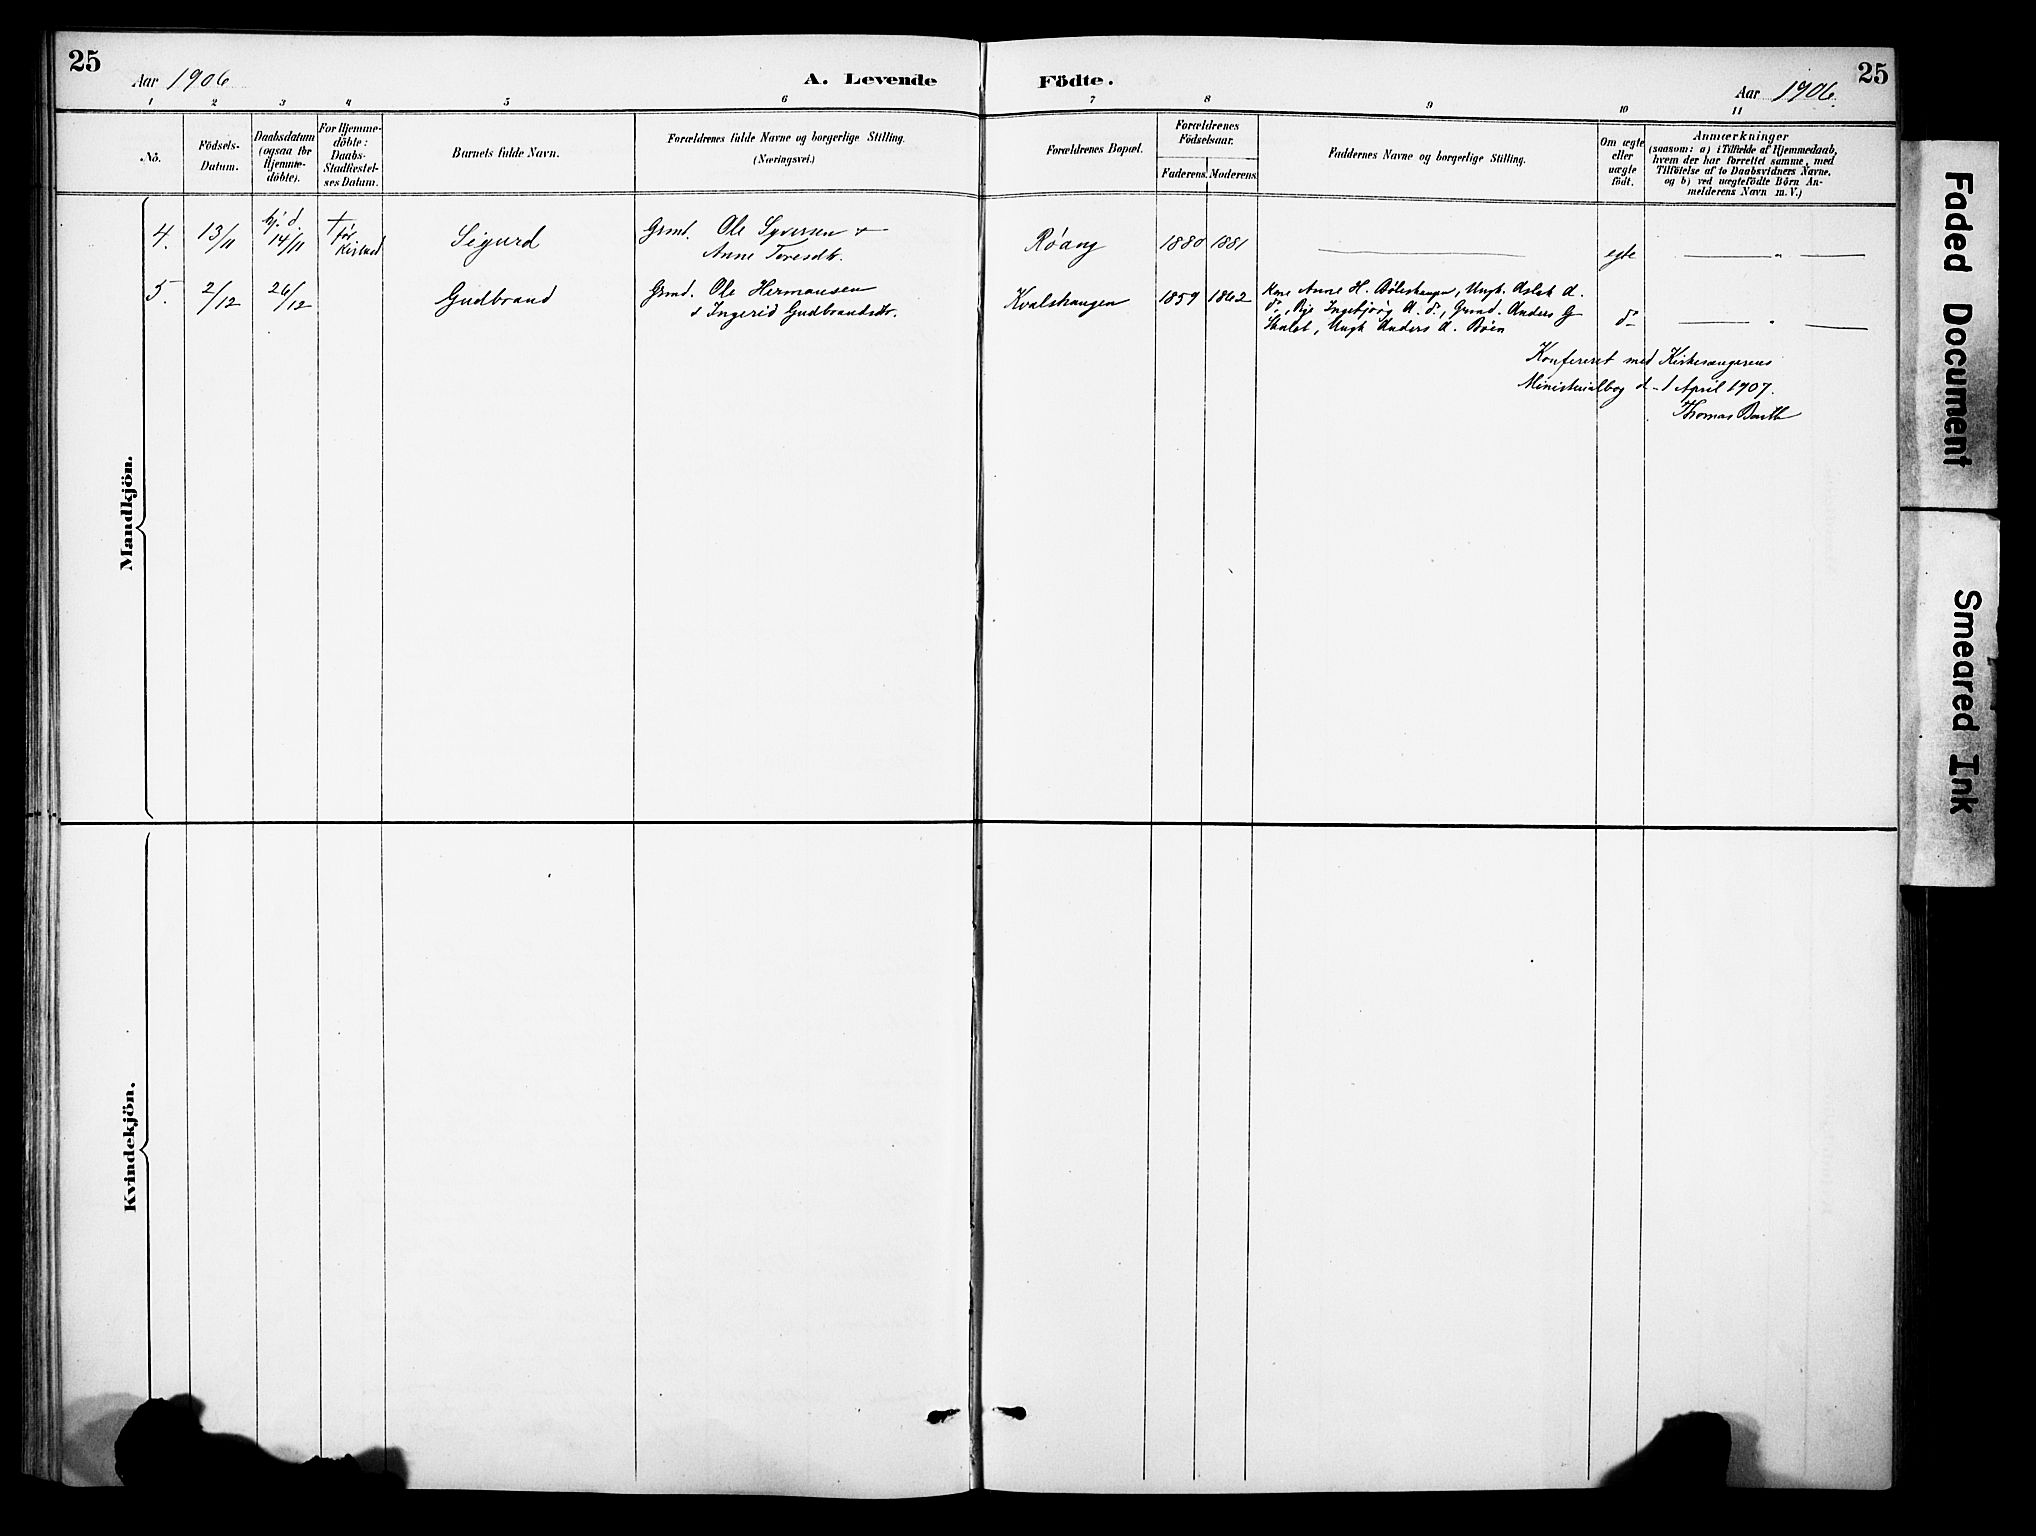 25
Aar 1906
A. Levende Födte.
Aar 1906.
25
1 2 3 4 5 6 7 8 9 10 11
Nö.
Födsels-
Datum.
Daabsdatum
(ogsaa for
Hjemme-
döbte).
For Hjemme-
döbte:
Daabs-
Stadfestel-
ses Datum.
Barnets fulde Navn.
Forældrenes fulde Navne og borgerlige Stilling.
(Næringsvei.)
Forældrenes Bopæl.
Forældrenes
Födselsaar.
Faderens. Moderens.
Faddernes Navne og borgerlige Stilling.
Om ægte
eller
uægte
födt.
Anmærkninger
(saasom: a) i Tilfælde af Hjemmedaab,
hvem der har forrettet samme, med
Tilföielse af to Daabsvidners Navne,
og b) ved uægtefödte Börn An-
melderens Navn m. V.)
Mandkjön.
4. 13/11 hj. d. 14/11 † før Sigurd Grmd. Ole Syversen +
Anne Toresdtr.
Røang 1880 1881 egte
5. 2/12 26/12 Gudbrand Grmd. Ole Hermansen
& Ingerid Gudbrandsdtr.
Kvalshaugen 1859 1862 Kone Anne H. Bøleshaugen, Ungk. Aslak A.
do, Pige Ingebjørg A. do, Grmd. Anders G
Skalet, Ungk Anders A. Bøen
do
Konfereret med Kirkesangerens
Ministerialbog d. 1 April 1907.
Thomas Barth
Kvindekjön.
Faded Document
Smeared Ink